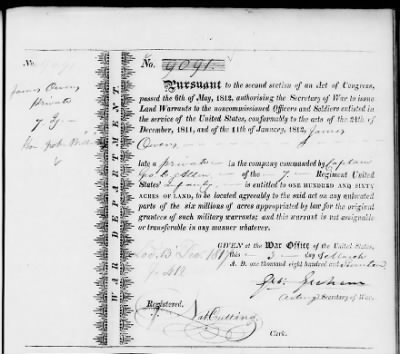 No. 9091.
No. 9091.
PURSUANT to the second section of an Act of Congress,
passed the 6th of May, 1812, authorising the Secretary of War to issue
Land Warrants to the noncommissioned Officers and Soldiers enlisted in
the service of the United States, conformably to the acts of the 24th of
December, 1811, and of the 11th of January, 1812, James
Owens
late a private in the company commanded by Captain
Allen of the 7 Regiment United
States' Infantry is entitled to ONE HUNDRED AND SIXTY
ACRES OF LAND, to be located agreeably to the said act on any unlocated
parts of the six millions of acres appropriated by law for the original
grantees of such military warrants; and this warrant is not assignable
or transferable in any manner whatever.
GIVEN at the War Office of the United States,
this 3 day of March
A. D. one thousand eight hundred and
Geo: Graham
Acting Secretary of War.
Registered,
Nat Cutting
Clerk.
James Owens
Private
7
WAR DEPARTMENT